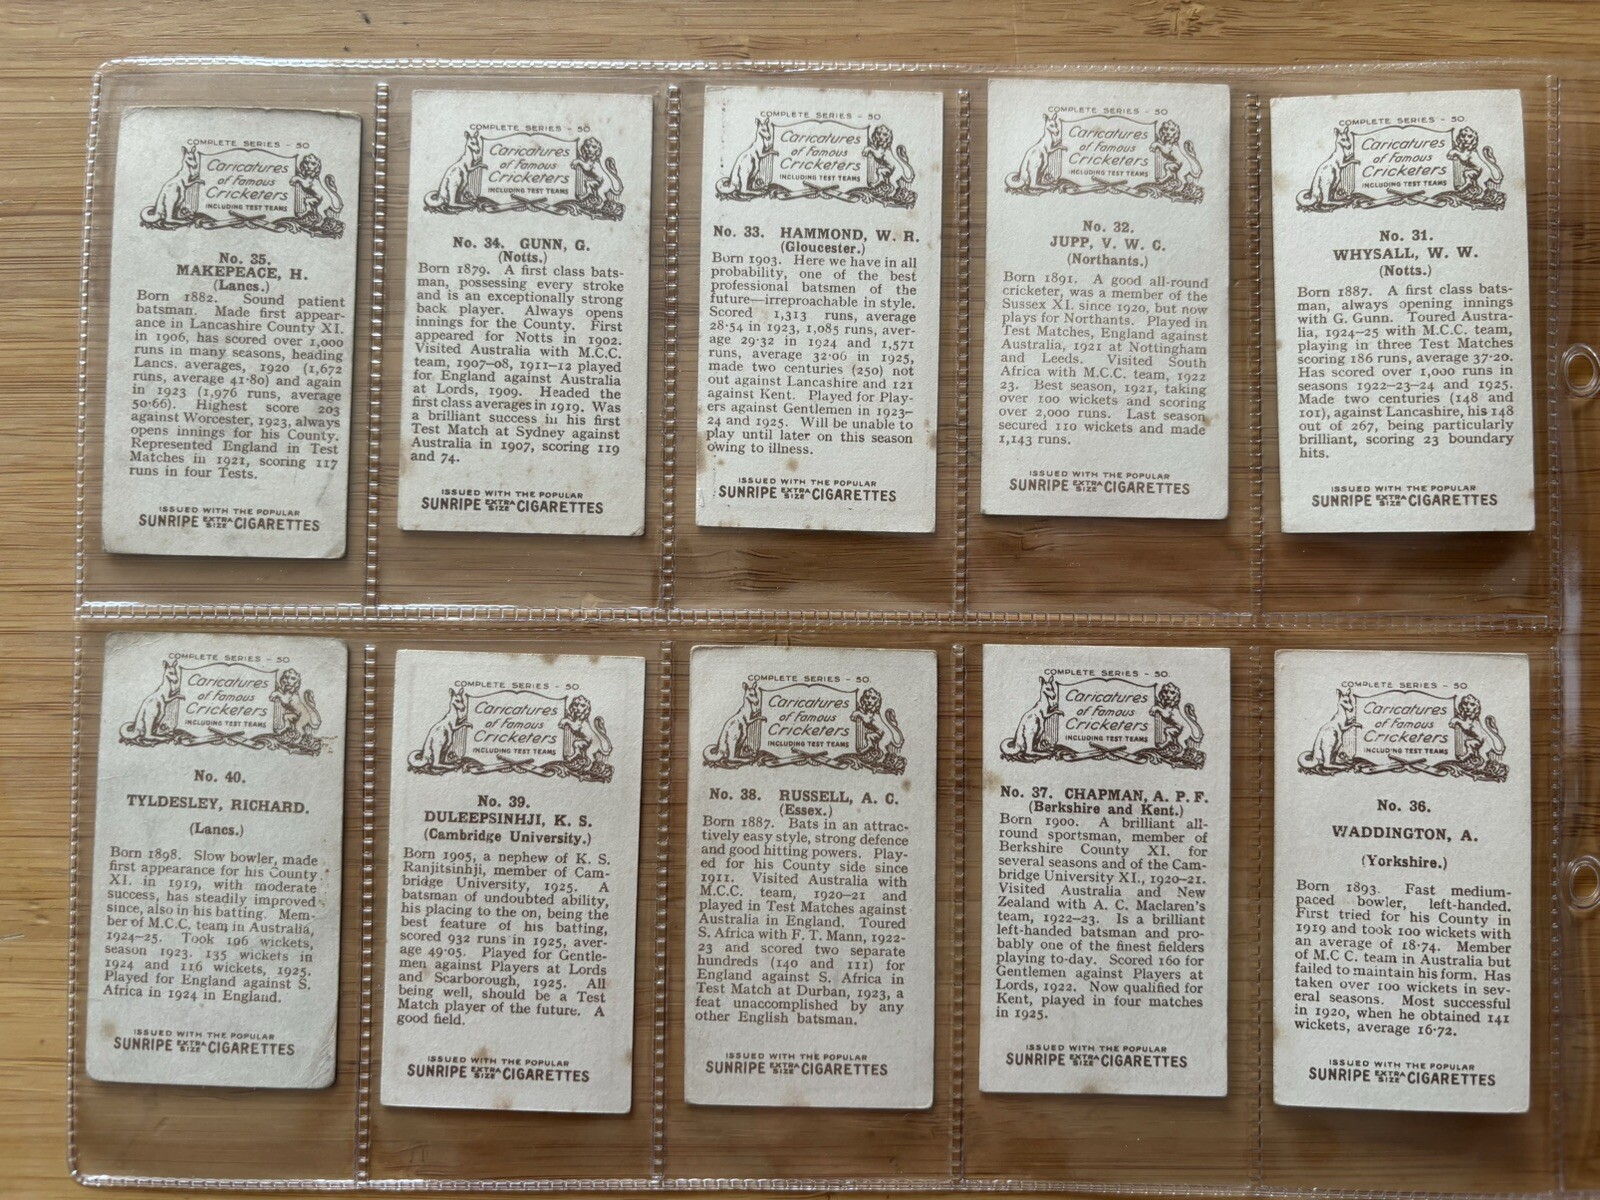 COMPLETE SERIES - 50
Caricatures
of Famous
Cricketers
INCLUDING TEST TEAMS
No. 35.
MAKEPEACE, H.
(Lancs.)
Born 1882. Sound patient
batsman. Made first appear-
ance in Lancashire County XI.
in 1906, has scored over 1,000
runs in many seasons, heading
Lancs. averages, 1920 (1,672
runs, average 41·80) and again
in 1923 (1,976 runs, average
50·66). Highest score 203
against Worcester, 1923, always
opens innings for his County.
Represented England in Test
Matches in 1921, scoring 117
runs in four Tests.
ISSUED WITH THE POPULAR
SUNRIPE EXTRA SIZE CIGARETTES
COMPLETE SERIES - 50.
Caricatures
of Famous
Cricketers
INCLUDING TEST TEAMS
No. 34. GUNN, G.
(Notts.)
Born 1879. A first class bats-
man, possessing every stroke
and is an exceptionally strong
back player. Always opens
innings for the County. First
appeared for Notts in 1902.
Visited Australia with M.C.C.
team, 1907–08, 1911–12 played
for England against Australia
at Lords, 1909. Headed the
first class averages in 1919. Was
a brilliant success in his first
Test Match at Sydney against
Australia in 1907, scoring 119
and 74.
ISSUED WITH THE POPULAR
SUNRIPE EXTRA SIZE CIGARETTES
COMPLETE SERIES - 50.
Caricatures
of Famous
Cricketers
INCLUDING TEST TEAMS
No. 33. HAMMOND, W. R.
(Gloucester.)
Born 1903. Here we have in all
probability, one of the best
professional batsmen of the
future—irreproachable in style.
Scored 1,313 runs, average
28·54 in 1923, 1,085 runs, aver-
age 29·32 in 1924 and 1,571
runs, average 32·06 in 1925,
made two centuries (250) not
out against Lancashire and 121
against Kent. Played for Play-
ers against Gentlemen in 1923–
24 and 1925. Will be unable to
play until later on this season
owing to illness.
ISSUED WITH THE POPULAR
SUNRIPE EXTRA SIZE CIGARETTES
COMPLETE SERIES - 50.
Caricatures
of Famous
Cricketers
INCLUDING TEST TEAMS
No. 32.
JUPP, V. W. C.
(Northants.)
Born 1891. A good all-round
cricketer, was a member of the
Sussex XI. since 1920, but now
plays for Northants. Played in
Test Matches, England against
Australia, 1921 at Nottingham
and Leeds. Visited South
Africa with M.C.C. team, 1922
23. Best season, 1921, taking
over 100 wickets and scoring
over 2,000 runs. Last season
secured 110 wickets and made
1,143 runs.
ISSUED WITH THE POPULAR
SUNRIPE EXTRA SIZE CIGARETTES
COMPLETE SERIES - 50.
Caricatures
of Famous
Cricketers
INCLUDING TEST TEAMS
No. 31.
WHYSALL, W. W.
(Notts.)
Born 1887. A first class bats-
man, always opening innings
with G. Gunn. Toured Austra-
lia, 1924–25 with M.C.C. team,
playing in three Test Matches
scoring 186 runs, average 37·20.
Has scored over 1,000 runs in
seasons 1922–23–24 and 1925.
Made two centuries (148 and
101), against Lancashire, his 148
out of 267, being particularly
brilliant, scoring 23 boundary
hits.
ISSUED WITH THE POPULAR
SUNRIPE EXTRA SIZE CIGARETTES
COMPLETE SERIES - 50
Caricatures
of Famous
Cricketers
INCLUDING TEST TEAMS
No. 40.
TYLDESLEY, RICHARD.
(Lancs.)
Born 1898. Slow bowler, made
first appearance for his County
XI. in 1919, with moderate
success, has steadily improved
since, also in his batting. Mem-
ber of M.C.C. team in Australia,
1924–25. Took 106 wickets,
season 1923. 135 wickets in
1924 and 116 wickets, 1925.
Played for England against S.
Africa in 1924 in England.
ISSUED WITH THE POPULAR
SUNRIPE EXTRA SIZE CIGARETTES
COMPLETE SERIES - 50.
Caricatures
of Famous
Cricketers
INCLUDING TEST TEAMS
No. 39.
DULEEPSINHJI, K. S.
(Cambridge University.)
Born 1905, a nephew of K. S.
Ranjitsinhji, member of Cam-
bridge University, 1925. A
batsman of undoubted ability,
his placing to the on, being the
best feature of his batting,
scored 932 runs in 1925, aver-
age 49·05. Played for Gentle-
men against Players at Lords
and Scarborough, 1925. All
being well, should be a Test
Match player of the future. A
good field.
ISSUED WITH THE POPULAR
SUNRIPE EXTRA SIZE CIGARETTES
COMPLETE SERIES - 50.
Caricatures
of Famous
Cricketers
INCLUDING TEST TEAMS
No. 38. RUSSELL, A. C.
(Essex.)
Born 1887. Bats in an attrac-
tively easy style, strong defence
and good hitting powers. Play-
ed for his County side since
1911. Visited Australia with
M.C.C. team, 1920–21 and
played in Test Matches against
Australia in England. Toured
S. Africa with F. T. Mann, 1922-
23 and scored two separate
hundreds (140 and 111) for
England against S. Africa in
Test Match at Durban, 1923, a
feat unaccomplished by any
other English batsman.
ISSUED WITH THE POPULAR
SUNRIPE EXTRA SIZE CIGARETTES
COMPLETE SERIES - 50.
Caricatures
of Famous
Cricketers
INCLUDING TEST TEAMS
No. 37. CHAPMAN, A. P. F.
(Berkshire and Kent.)
Born 1900. A brilliant all-
round sportsman, member of
Berkshire County XI. for
several seasons and of the Cam-
bridge University XI., 1920–21.
Visited Australia and New
Zealand with A. C. Maclaren's
team, 1922–23. Is a brilliant
left-handed batsman and pro-
bably one of the finest fielders
playing to-day. Scored 160 for
Gentlemen against Players at
Lords, 1922. Now qualified for
Kent, played in four matches
in 1925.
ISSUED WITH THE POPULAR
SUNRIPE EXTRA SIZE CIGARETTES
COMPLETE SERIES - 50.
Caricatures
of Famous
Cricketers
INCLUDING TEST TEAMS
No. 36.
WADDINGTON, A.
(Yorkshire.)
Born 1893. Fast medium-
paced bowler, left-handed.
First tried for his County in
1919 and took 100 wickets with
an average of 18·74. Member
of M.C C. team in Australia but
failed to maintain his form. Has
taken over 100 wickets in sev-
eral seasons. Most successful
in 1920, when he obtained 141
wickets, average 16·72.
ISSUED WITH THE POPULAR
SUNRIPE EXTRA SIZE CIGARETTES